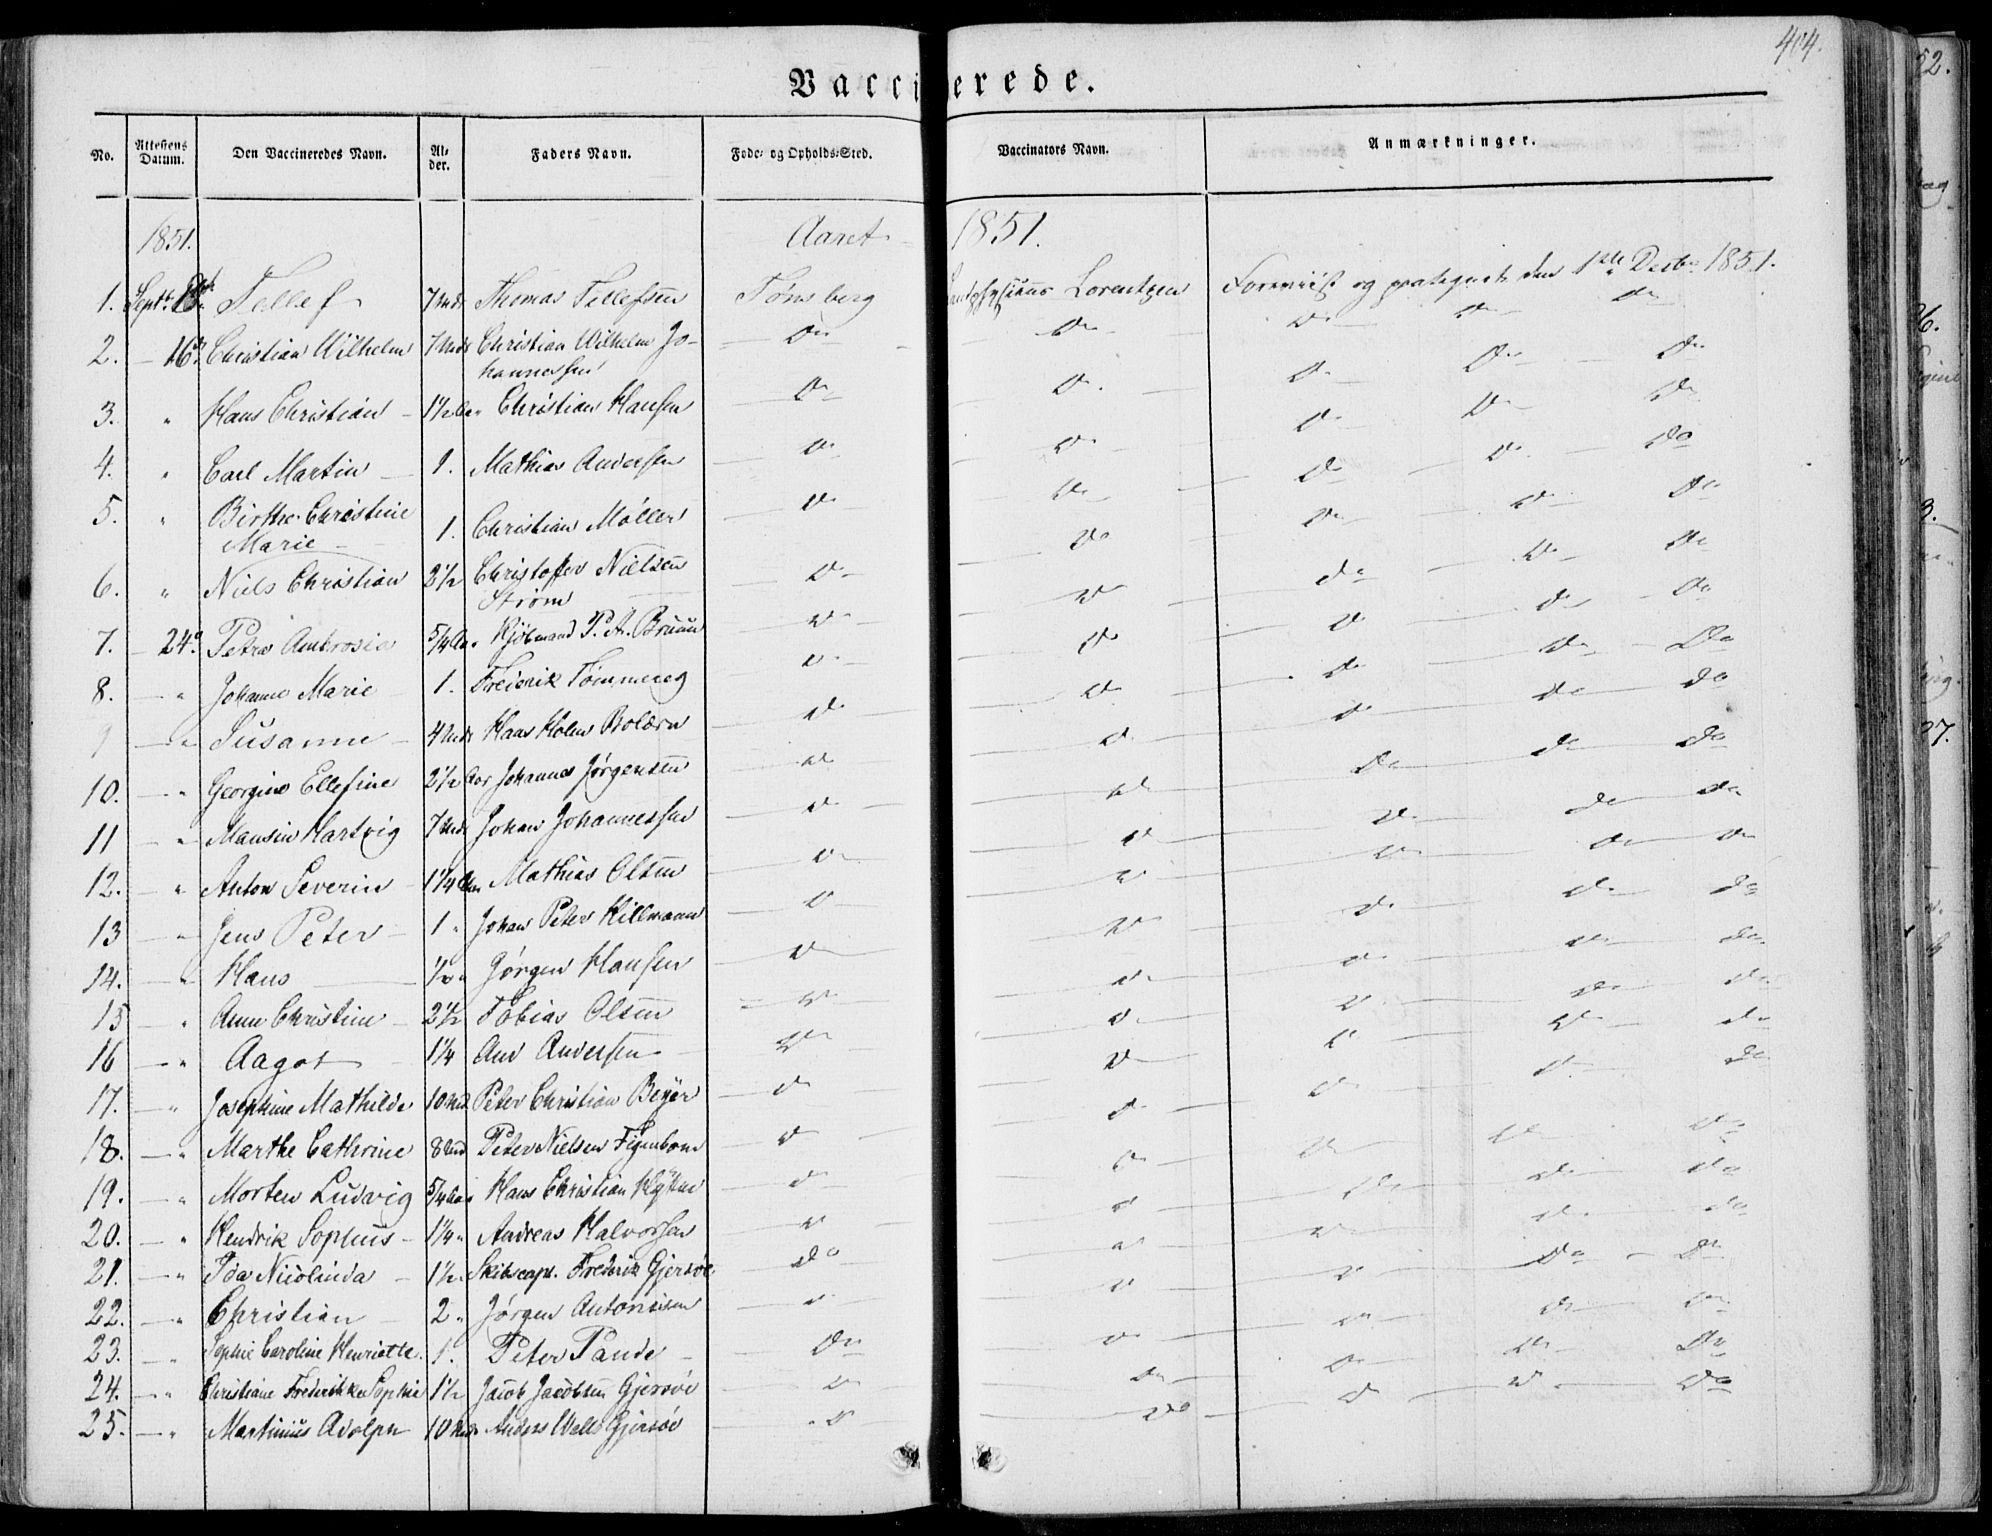 404.
Vaccinerede.
No. Attestens Datum. Den Vaccineredes Navn. Al-der. Faders Navn. Føde- og Opholds-Sted. Vaccinators Navn. Anmærkninger.
1851. Aaret 1851.
1. Septr Tellef 7 Mdr Thomas Tellefsen Tønsberg Lorentzen Foreviist og protegeret den 1ste Decbr 1851.
2. — 16de Christian Wilhelm 7 Mdr Christian Wilhelm Jo- Do Do Do Do Do
hannessen
3. " Hans Christian 1½ Aar Christian Hansen Do Do Do Do Do
4. " Carl Martin 1. Mathias Andersen Do Do Do Do Do
5. " Birthe Christine
Marie 1. Christian Møller Do Do Do Do Do
6. " Niels Christian 2½ Christoffer Nielsen Do Do Do Do Do
Strøm
7. — 24de Petra Ambrosia 5/4 Aar Kjøbmand P. A. Bruun Do Do Do Do Do
8. — " Johanne Marie 1. Frederik Tømmereg Do Do Do Do Do
9 — " Susanne 4 Mdr Hans Holm Bolærn Do Do Do Do Do
10. — " Georgine Ellefine 2½ Aar Johannes Jørgensen Do Do Do Do Do
11 — " Mansin Hartvig 7 Mdr Johan Johannessen Do Do Do Do Do
12. — " Anton Severin 1¼ Aar Mathias Olsen Do Do Do Do Do
13 — " Jens Peter 1 " Johan Peter Killmann Do Do Do Do Do
14. — " Hans ½ " Jørgen Hansen Do Do Do Do Do
15 — " Anne Christine 2½ Tobias Olsen Do Do Do Do Do
16 — " Aagot 1¼ And Andersen Do Do Do Do Do
17. — " Josephine Mathilde 10 Md. Peter Christian Beyer Do Do Do Do Do
18. — " Marthe Cathrine 8 Md Peter Nielsen Figenbom Do Do Do Do Do
19. — " Morten Ludvig 5/4 Aar Hans Christian Do Do Do Do Do
20. — " Hendrik Sophus 1¼ " Andreas Halvorsen Do Do Do Do Do
21. — " Ida Nicolinda 1½ " Skibscapt. Frederik Gjersøe Do Do Do Do Do
22. — " Christian 2 " Jørgen Antonisen Do Do Do Do Do
23. — " Sophie Caroline Henriette. 1. Peter Pande Do Do Do Do Do
24. — " Christiane Frederikke Sophie 1½ Jacob Jacobsen Gjersøe Do Do Do Do Do
25. — " Martinius Adolph 10 Mdr Anders Gjersøe Do Do